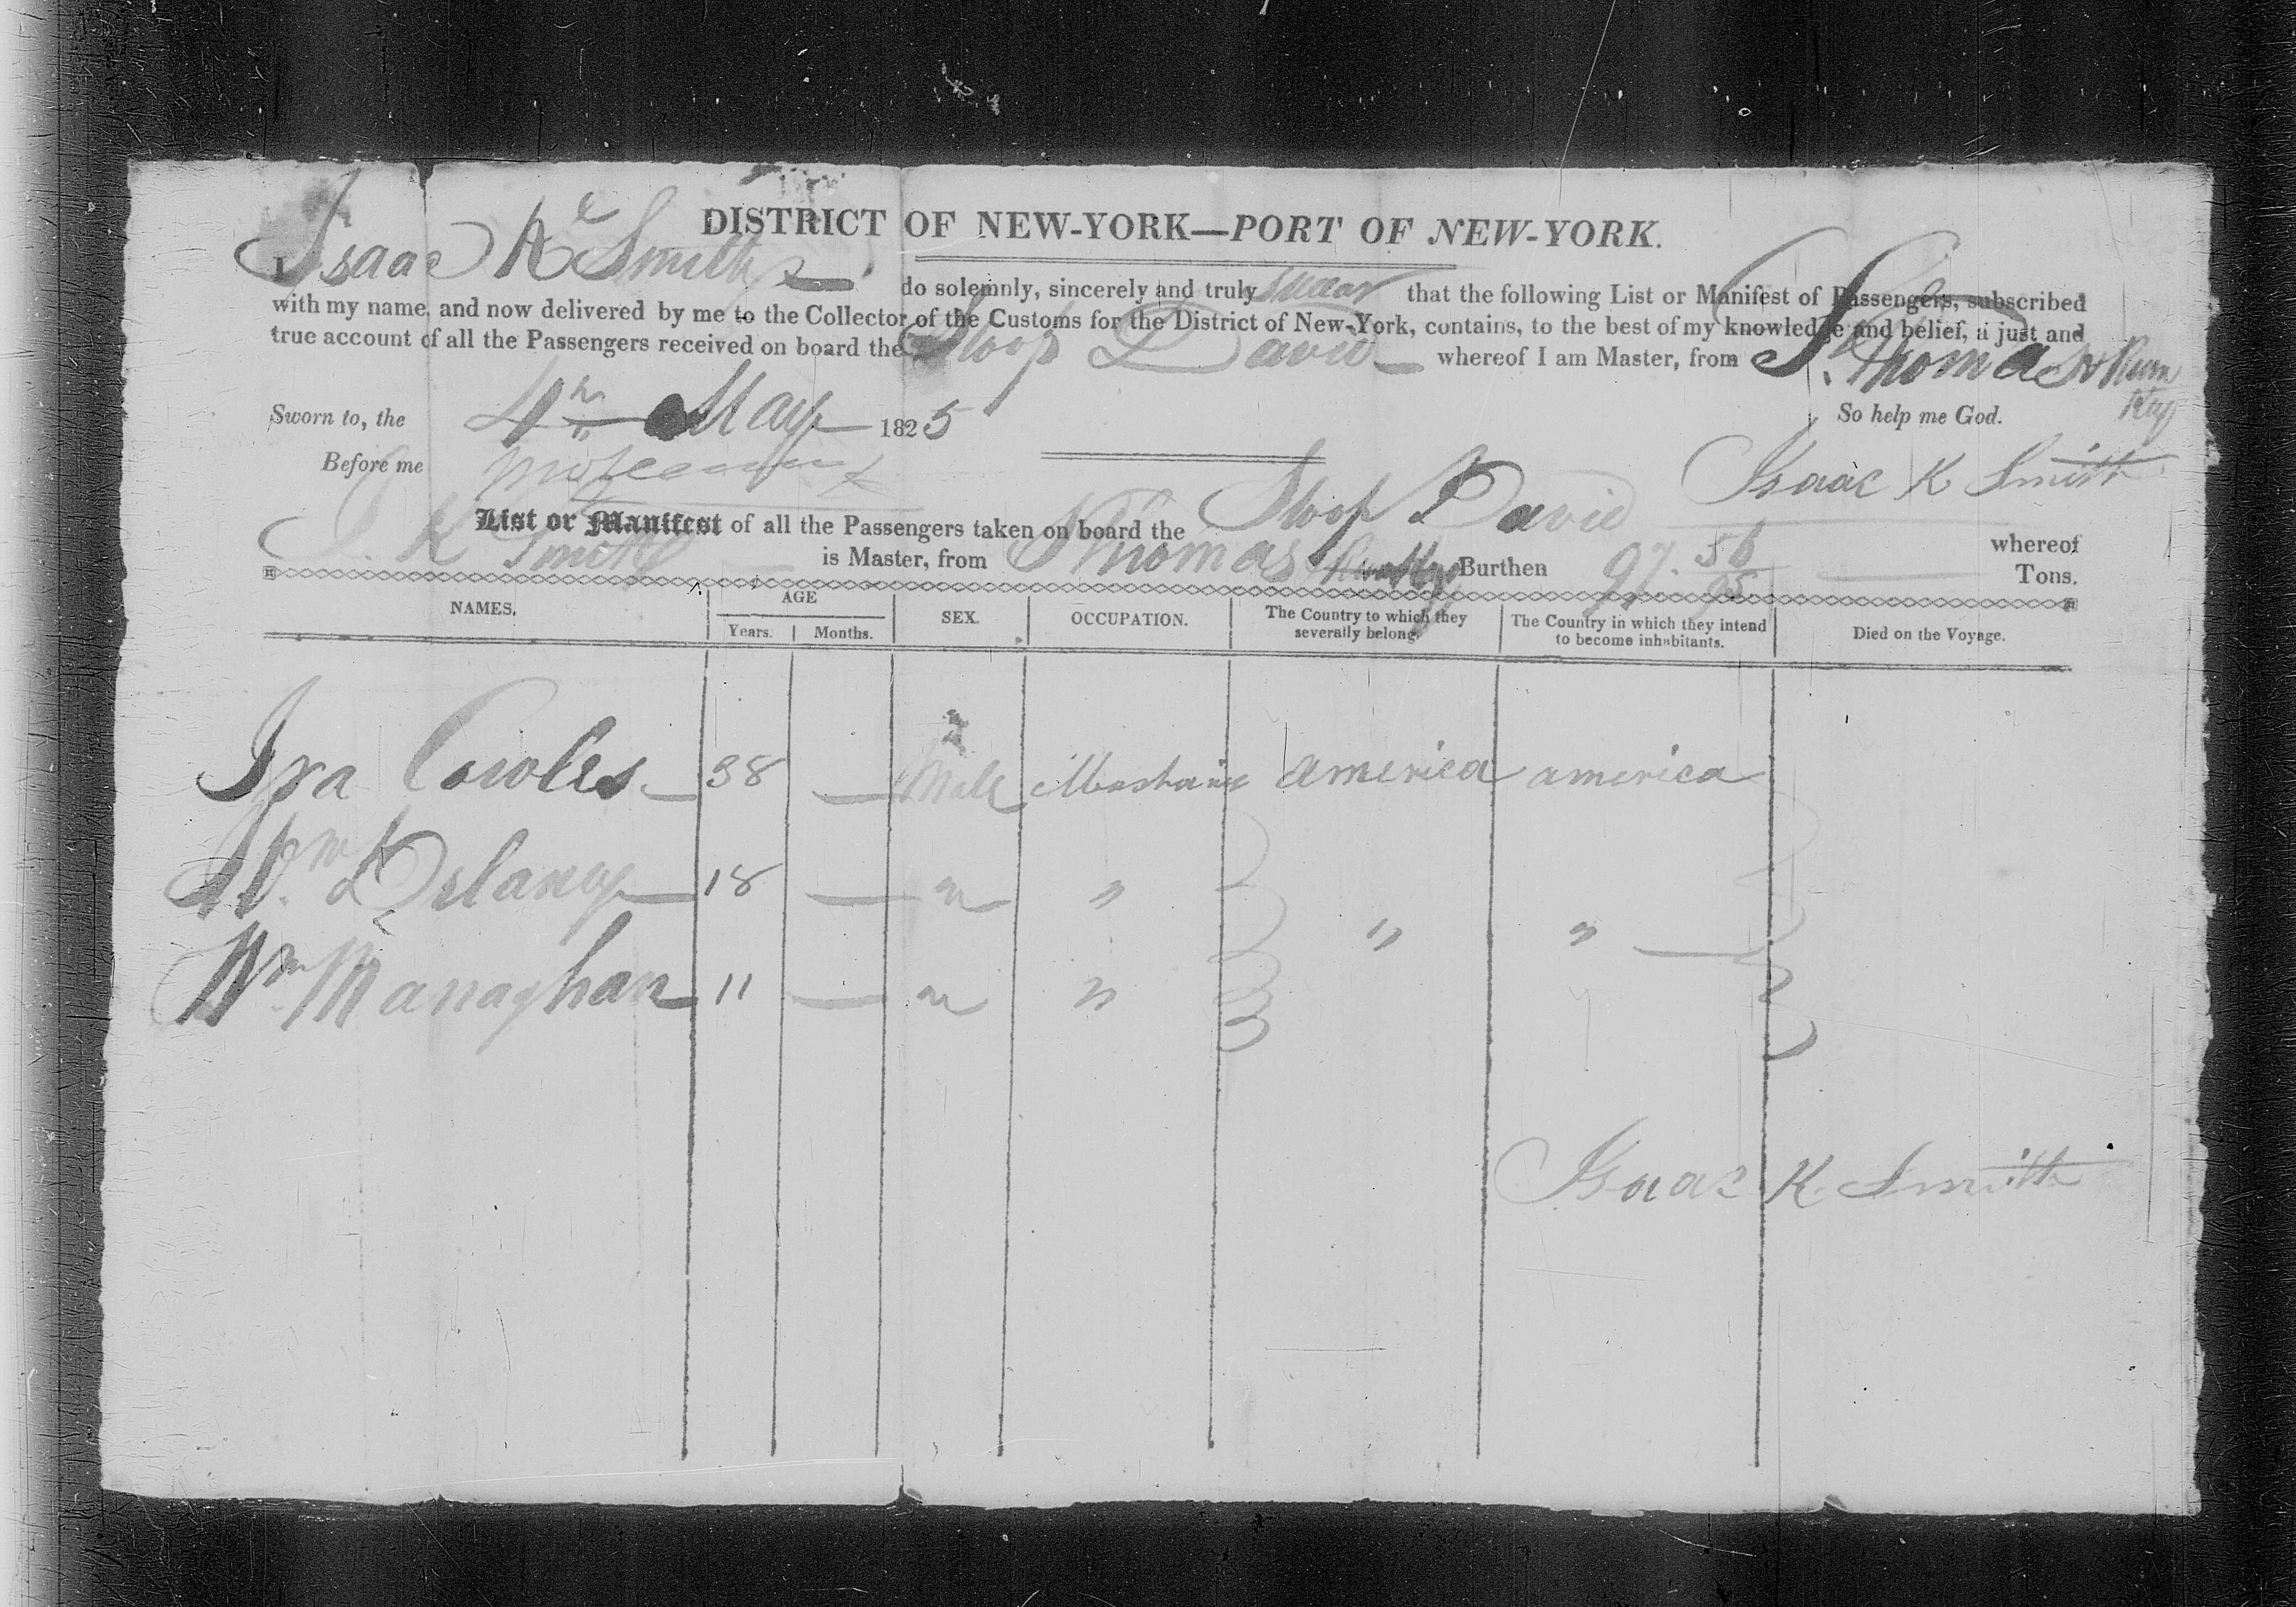 DISTRICT OF NEW-YORK—PORT OF NEW-YORK.
I, Isaac K Smith do solemnly, sincerely and truly swear that the following List or Manifest of Passengers, subscribed
with my name, and now delivered by me to the Collector of the Customs for the District of New-York, contains, to the best of my knowledge and belief, a just and
true account of all the Passengers received on board the Sloop David whereof I am Master, from St. Thomas & Rum
Key
Sworn to, the 4th May 1825 So help me God.
Before me Isaac K Smith
List or Manifest of all the Passengers taken on board the Sloop David whereof
I. K Smith is Master, from St Thomas Burthen 97. 56/95 Tons.
NAMES. AGE Years. Months. SEX. OCCUPATION. The Country to which they severally belong. The Country in which they intend to become inhabitants. Died on the Voyage.
Ira Cowles 38 — Male Mechanic America america
Wm. Delancy 18 — " "
" " —
Wm. Managhan 11 — " "
Isaac K. Smith